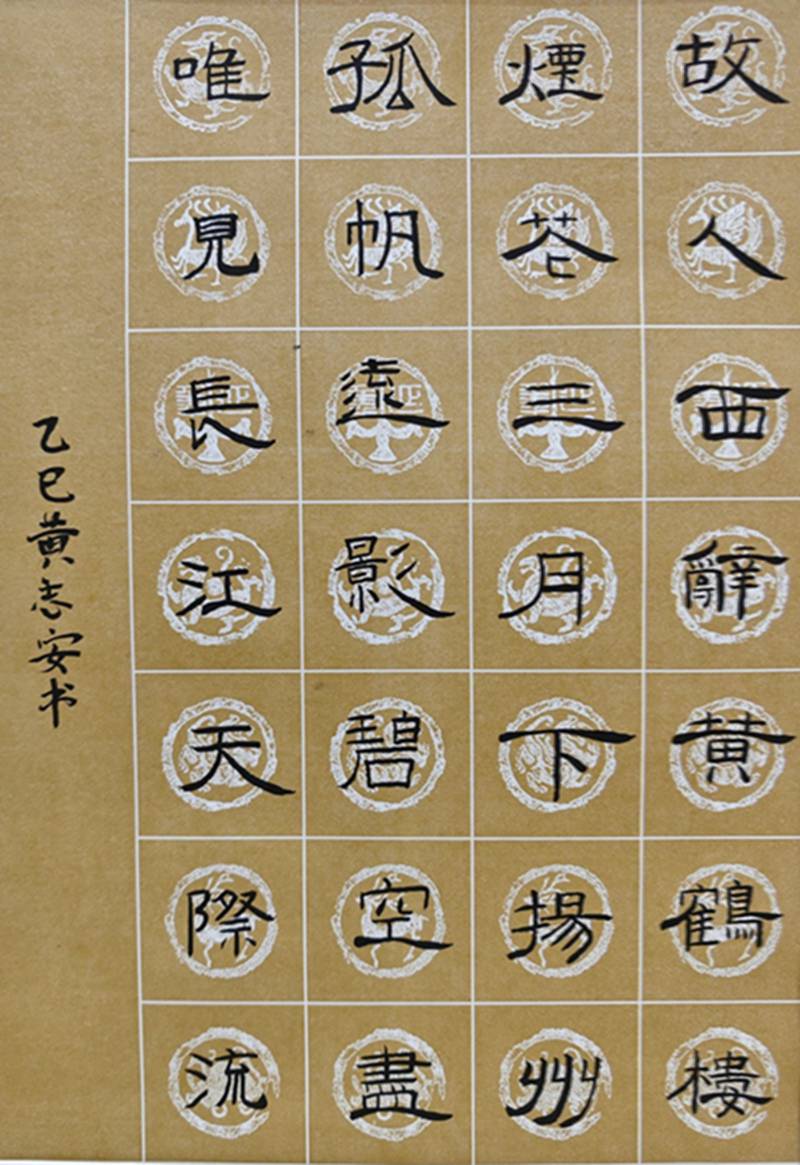 故人西辭黄鶴樓
煙花三月下揚州
孤帆遠影碧空盡
唯見長江天際流
乙巳黄志安书